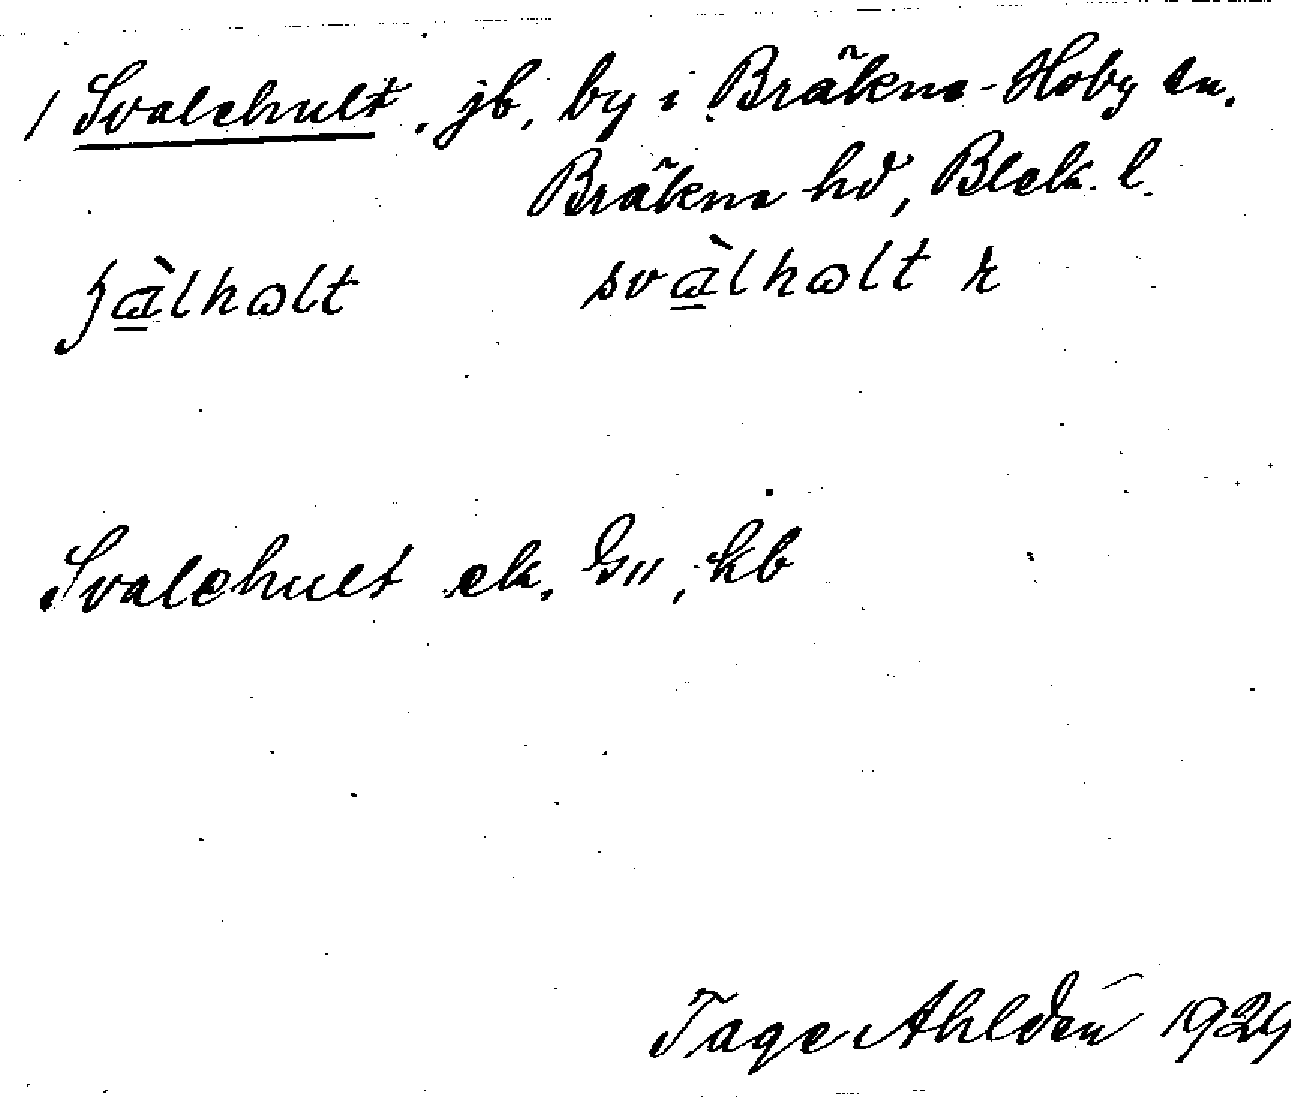 / Svalehult, jb, by i Bräkne-Hoby sn.
Bräkne hd, Blek. l.
sv̀alhωlt r
Svalehult ek. G11, kb
Tage Ahldén 1924